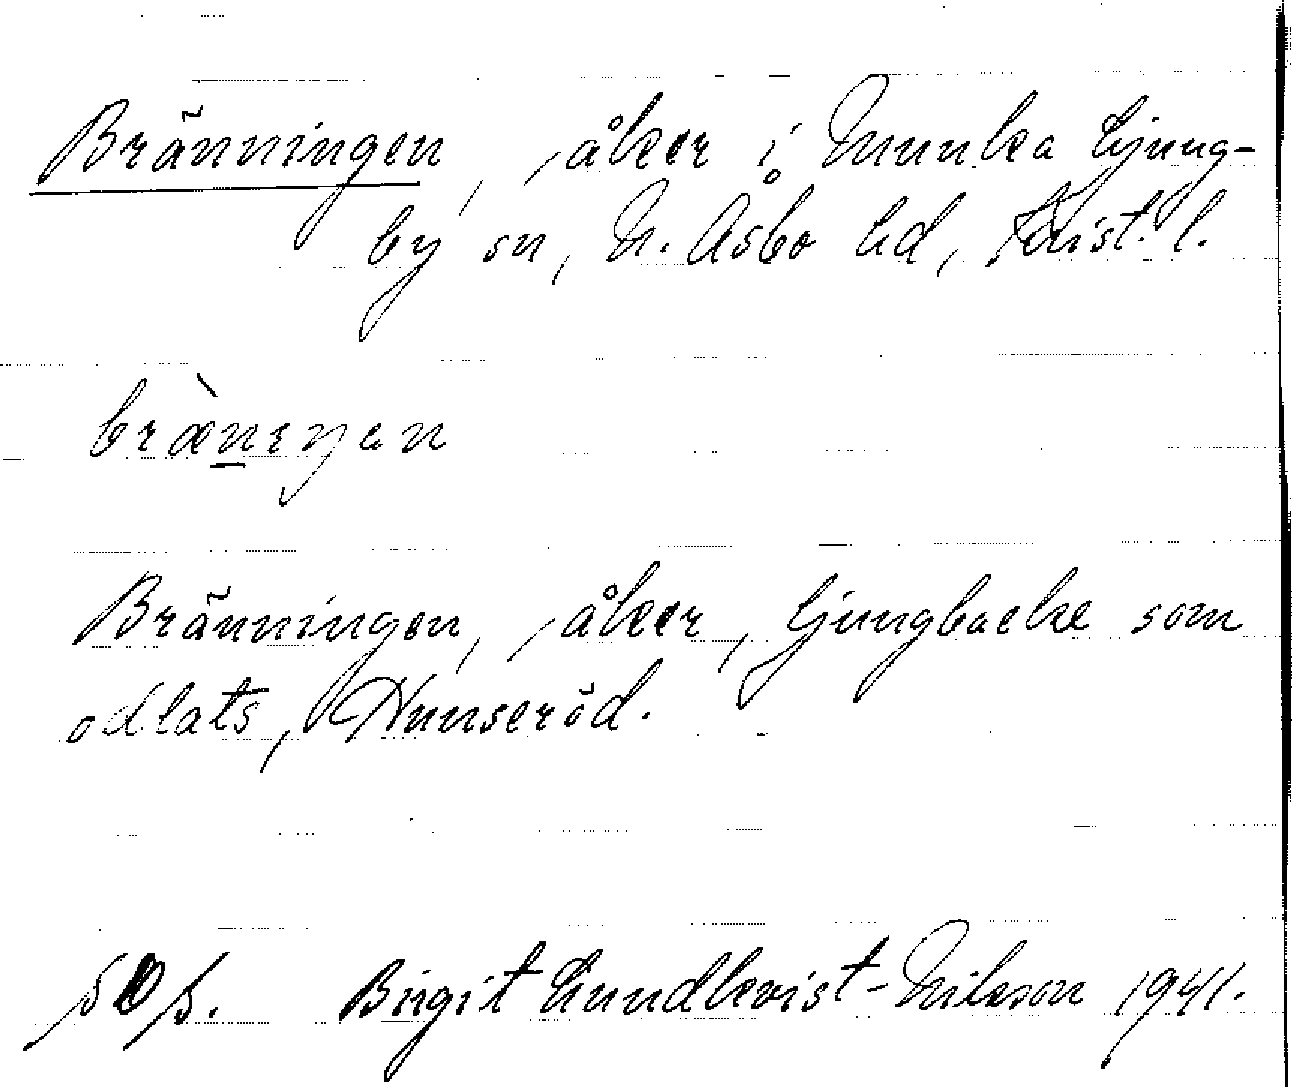 Bränningen, åker i Munka Ljung-
by sn, N. Åsbo hd, Krist. l.
bræ̀nıŋan
Bränningen, åker, ljungbacke som
odlats, Hunseröd.
Birgit Lundkvist-Nilsson 1941.